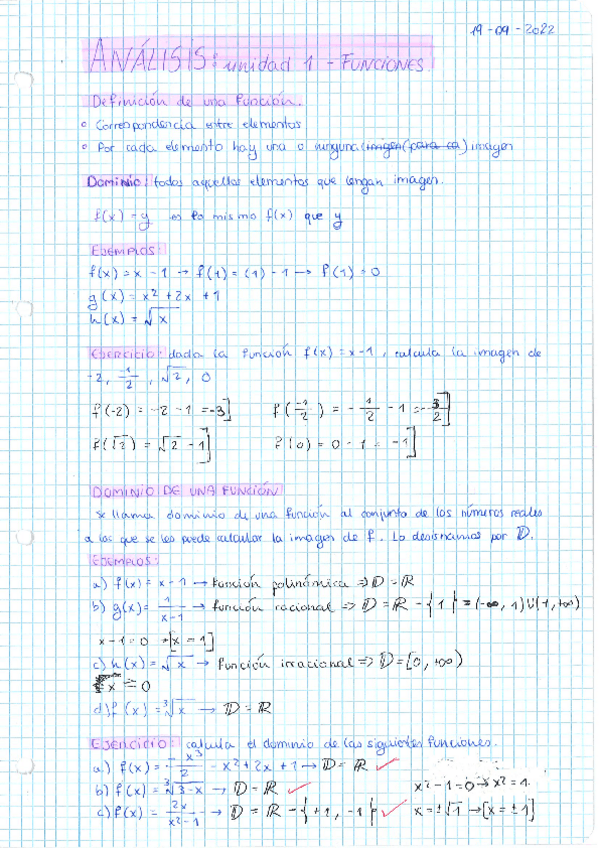 19-09-2022
ANÁLISIS: unidad 1 - FUNCIONES
Definición de una función.
o Correspondencia entre elementos
o Por cada elemento hay una o ninguna (imagen (para ca) imagen
Dominio: todos aquellos elementos que tengan imagen.
f(x) = y es lo mismo f(x) que y
EJEMPLOS:
f(x) = x - 1 → f(1) = (1) - 1 → f(1) = 0
g(x) = x² + 2x + 1
h(x) = √x
EJERCICIO: dada la función f(x) = x-1, calcula la imagen de
-2, -1/2, √2, 0
f(-2) = -2 - 1 = -3] f(-1/2) = -1/2 - 1 = -3/2]
f(√2) = √2 - 1] f(0) = 0 - 1 = -1]
DOMINIO DE UNA FUNCIÓN
Se llama dominio de una función al conjunto de los números reales
a los que se les puede calcular la imagen de f. Lo designamos por D.
EJEMPLOS:
a) f(x) = x - 1 → función polinómica ⇒ D = R
b) g(x) = 1/x-1 → función racional ⇒ D = R - {1} = (-∞, 1) U (1, +∞)
x - 1 = 0 → [x = 1]
c) h(x) = √x → función irracional ⇒ D = [0, +∞)
x = 0
d) f(x) = ³√x → D = R
EJERCICIO: calcula el dominio de las siguientes funciones.
a) f(x) = -x³/2 - x² + 2x + 1 → D = R ✓
b) f(x) = ³√3-x → D = R ✓ x² - 1 = 0 → x² = 1
c) f(x) = 2x/x²-1 → D = R - {+1, -1} ✓ x = ±√1 → [x = ±1]